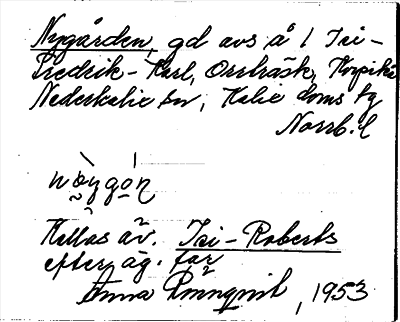 Nygården, gd avs å 1 Isi-
Fredrik-Karl, Orrträsk, Korpiki
Nederkalix sn, Kalix doms hg
Norrb. l
nøygon
Kallas äv. Isi-Roberts
efter äg. far
Anna Brännqvist, 1953